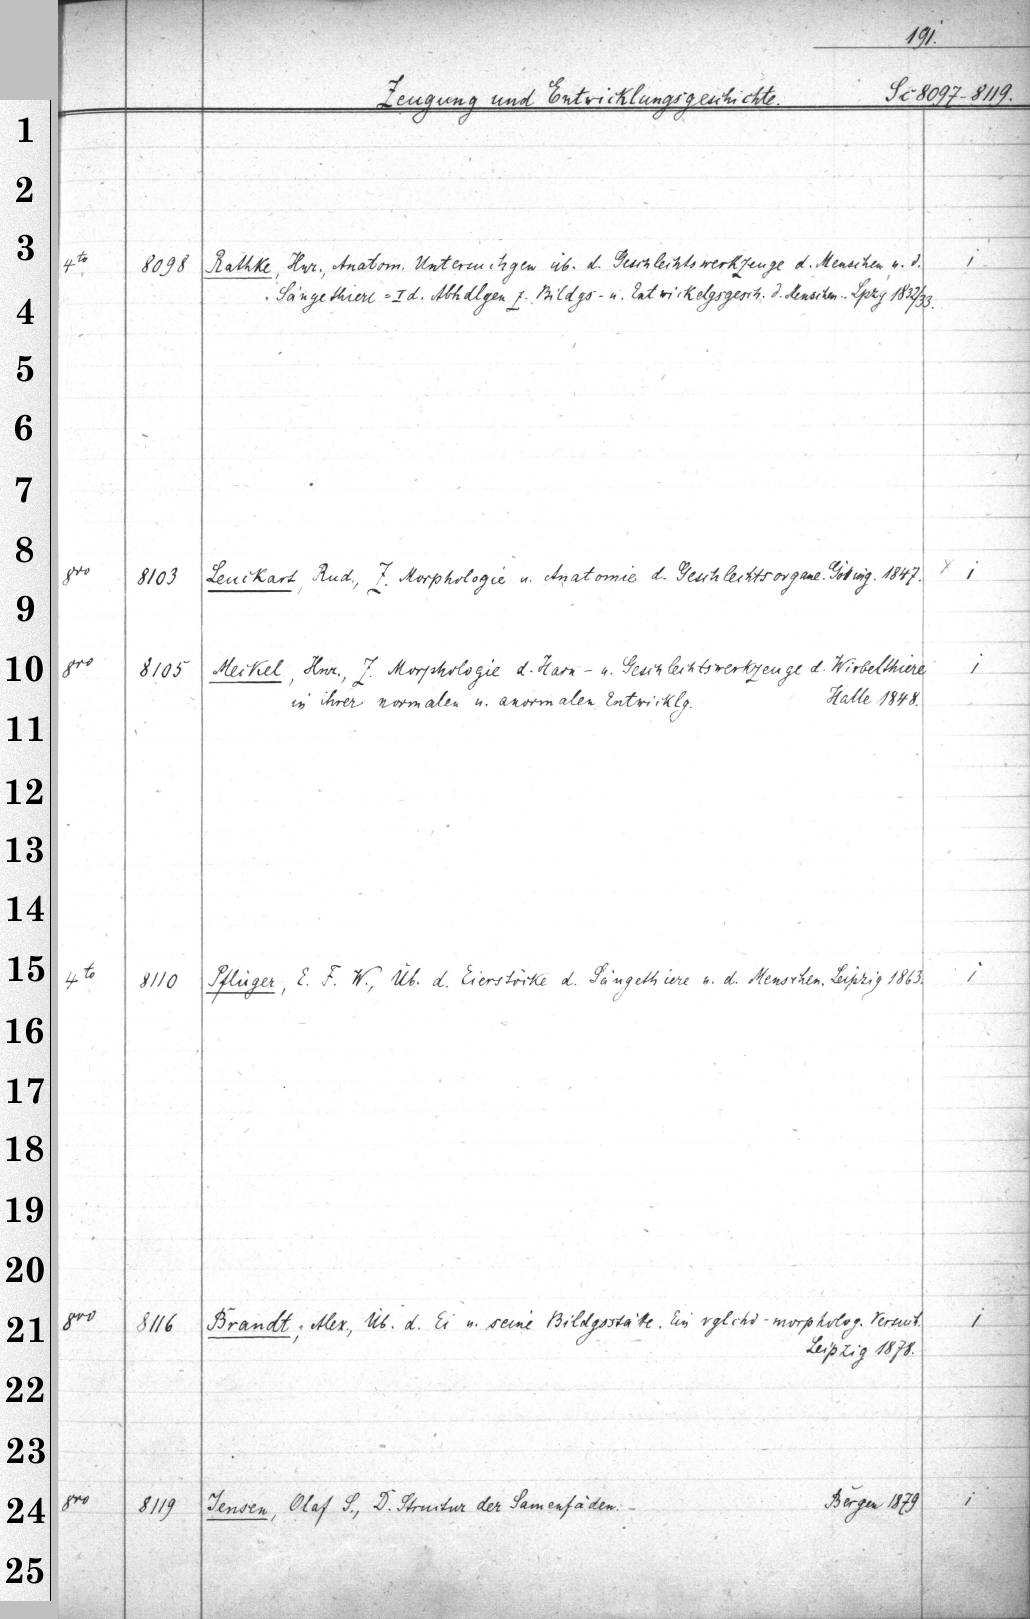 191.
Zeugung und Entwicklungsgeschichte. Sc 8097-8119.
1
2
3
4to 8098 Rathke, Hnr., Anatom. Untersuchgen üb. d. Geschlechtswerkzeuge d. Menschen u. d. i
4
Säugethiere = I d. Abhdlgen z. Bildgs- u. Entwickelgsgesch. d. Menschen. Lpzg 1832/33.
5
6
7
8
8vo 8103 Leuckart, Rud., Z. Morphologie u. Anatomie d. Geschlechtsorgane. Göting. 1847. i
9
10
8vo 8105 Meckel, Hnr., Z. Morphologie d. Harn- u. Geschlechtswerkzeuge d. Wirbelthiere i
in ihrer normalen u. anormalen Entwicklg. Halle 1848.
11
12
13
14
15
4to 8110 Pflüger, E. F. W., Üb. d. Eierstöcke d. Säugethiere u. d. Menschen. Leipzig 1863. i
16
17
18
19
20
21
8vo 8116 Brandt, Alex., Üb. d. Ei u. seine Bildgsstätte. Ein vglchd-morpholog. Versuch. i
Leipzig 1878.
22
23
24
8vo 8119 Jensen, Olaf S., D. Structur der Samenfäden. - Bergen 1879 i
25